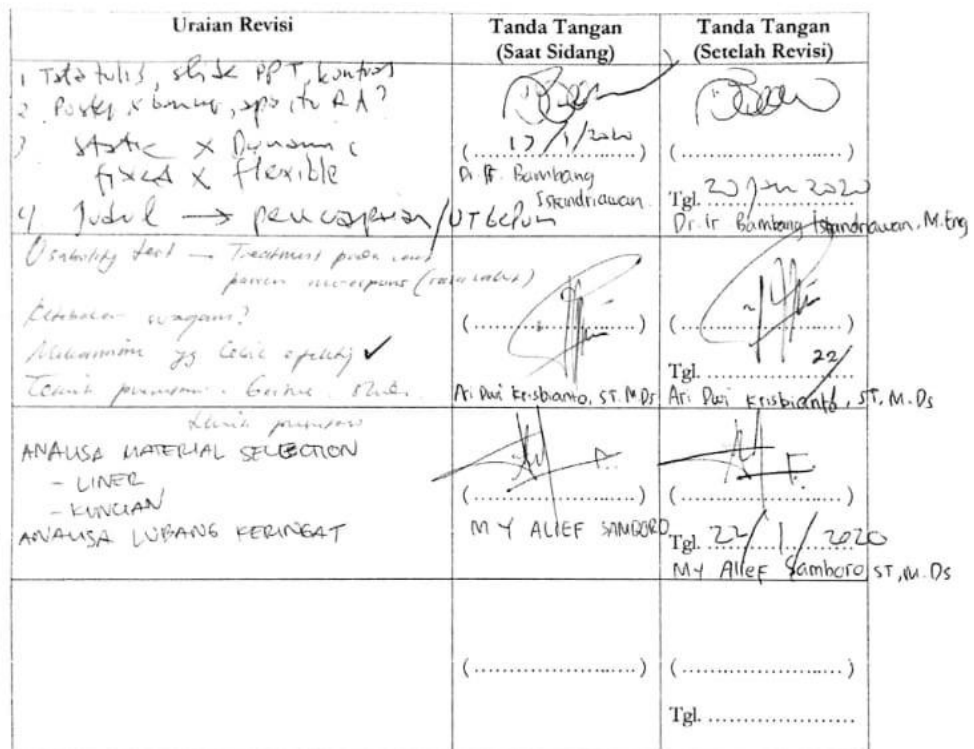 Uraian Revisi
Tanda Tangan
(Saat Sidang)
Tanda Tangan
(Setelah Revisi)
1 Tata tulis, slide PPT, kontras
2 Poster, x banner, apa itu RA?
3 static x Dynamic
fixed x flexible
4 Judul → pencapaian / UT belum
(17/1/2020)
Dr. Ir. Bambang
Iskandriawan.
(......................)
Tgl. 20 Jan 2020
Dr. Ir Bambang Iskandriawan, M.Eng
Usability test — Treatment pada
Ketebalan
Mekanisme yg lebih efektif ✓
Teknik
(......................)
Ari Dwi Krisbianto, ST. M.Ds
(......................)
Tgl. 22/
Ari Dwi Krisbianto, ST, M.Ds
ANALISA MATERIAL SELECTION
- LINER
- KUNCIAN
ANALISA LUBANG KERINGAT
(......................)
M Y ALIEF SAMBORO
(......................)
Tgl. 22/1/2020
MY Alief Samboro ST, M.Ds
(......................)
(......................)
Tgl. ......................